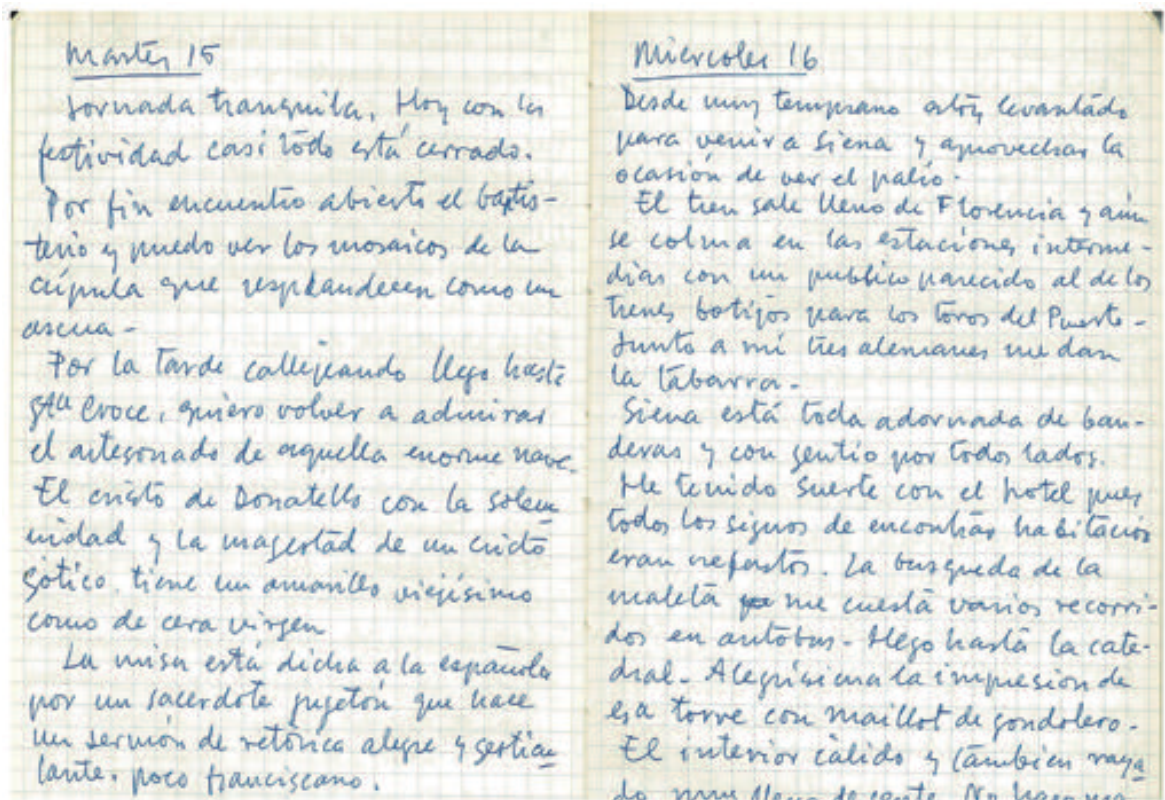 Martes 15
Jornada tranquila. Hoy con la
festividad casi todo está cerrado.
Por fin encuentro abierto el baptis-
terio y puedo ver los mosaicos de la
cúpula que resplandecen como un
ascua-
Por la tarde callejeando llego hasta
Sta Croce, quiero volver a admirar
el artesonado de aquella enorme nave.
El cristo de Donatello con la solem
nidad y la magestad de un cristo
gótico, tiene un amarillo viejísimo
como de cera virgen
La misa está dicha a la española
por un sacerdote que hace
un sermón de retórica alegre y gesticu
lante, poco franciscano.
Miercoles 16
Desde muy temprano estoy levantado
para venir a Siena y aprovechar la
ocasión de ver el palio.
El tren sale lleno de Florencia y aún
se colma en las estaciones interme-
dias con un publico parecido al de los
trenes botijos para los toros del Puerto-
Junto a mí tres alemanes me dan
la tabarra-
Siena está toda adornada de ban-
deras y con gentio por todos lados.
He tenido suerte con el hotel pues
todos los signos de encontrar habitación
eran nefastos. La busqueda de la
maleta me cuesta varios recorri-
dos en autobus- Llego hasta la cate-
dral- Alegrísima la impresion de
esa torre con maillot de gondolero-
El interior cálido y tambien raya
do muy lleno de gente. No hace